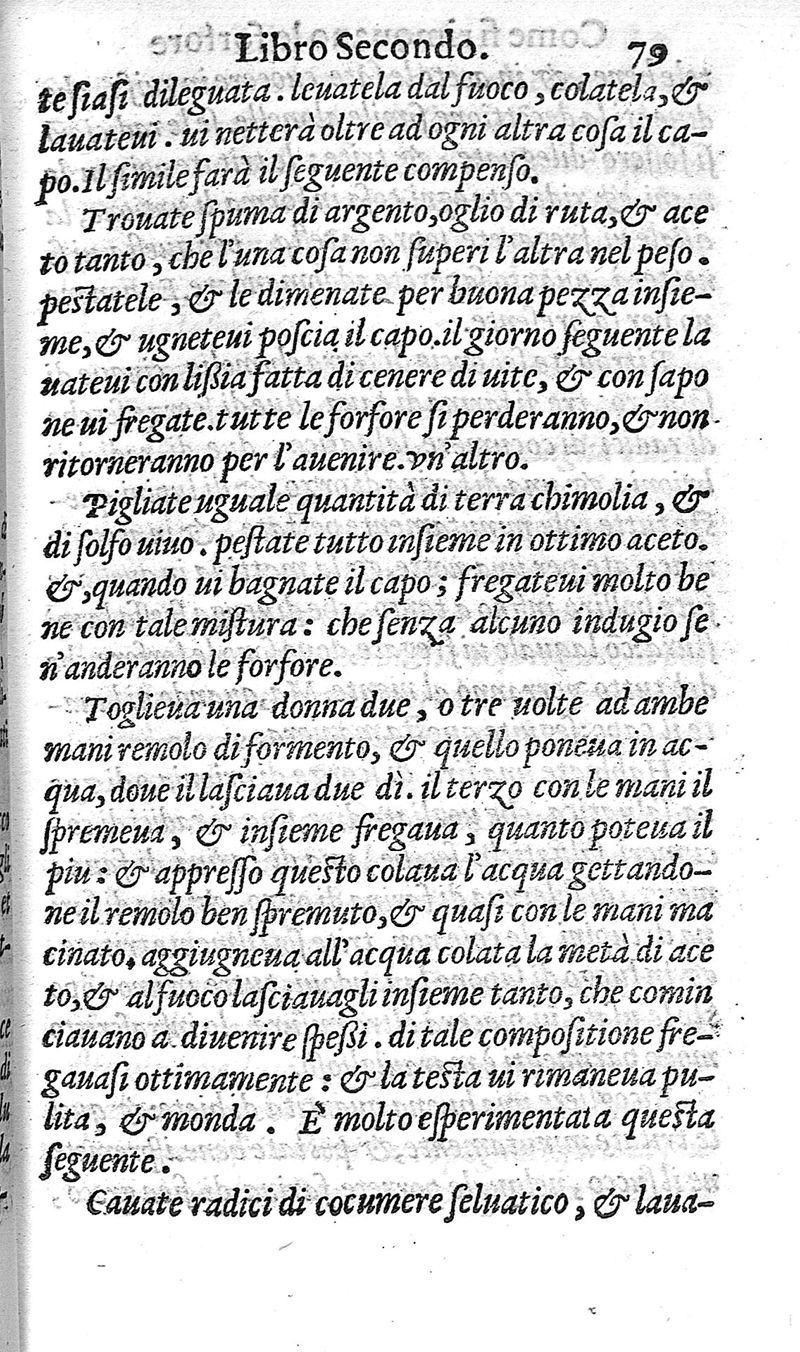 Libro Secondo. 79
te ſiaſi dileguata. leuatela dal fuoco, colatela, &
lauateui. ui netterà oltre ad ogni altra coſa il ca-
po. Il ſimile farà il ſeguente compenſo.
Trouate ſpuma di argento, oglio di ruta, & ace
to tanto, che l'una coſa non ſuperi l'altra nel peſo.
peſtatele, & le dimenate per buona pezza inſie-
me, & ugneteui poſcia il capo. il giorno ſeguente la
uateui con lißia fatta di cenere di uite, & con ſapo
ne ui fregate. tutte le forfore ſi perderanno, & non
ritorneranno per l'auenire. vn'altro.
Pigliate uguale quantità di terra chimolia, &
di ſolfo uiuo. peſtate tutto inſieme in ottimo aceto.
&, quando ui bagnate il capo; fregateui molto be
ne con tale miſtura: che ſenza alcuno indugio ſe
n'anderanno le forfore.
Toglieua una donna due, o tre uolte ad ambe
mani remolo di formento, & quello poneua in ac-
qua, doue il laſciaua due dì. il terzo con le mani il
ſpremeua, & inſieme fregaua, quanto poteua il
piu: & appreſſo queſto colaua l'acqua gettando-
ne il remolo ben ſpremuto, & quaſi con le mani ma
cinato. aggiugneua all'acqua colata la metà di ace
to, & al fuoco laſciauagli inſieme tanto, che comin
ciauano a diuenire ſpeßi. di tale compoſitione fre-
gauaſi ottimamente: & la teſta ui rimaneua pu-
lita, & monda. È molto eſperimentata queſta
ſeguente.
Cauate radici di cocumere ſeluatico, & laua-